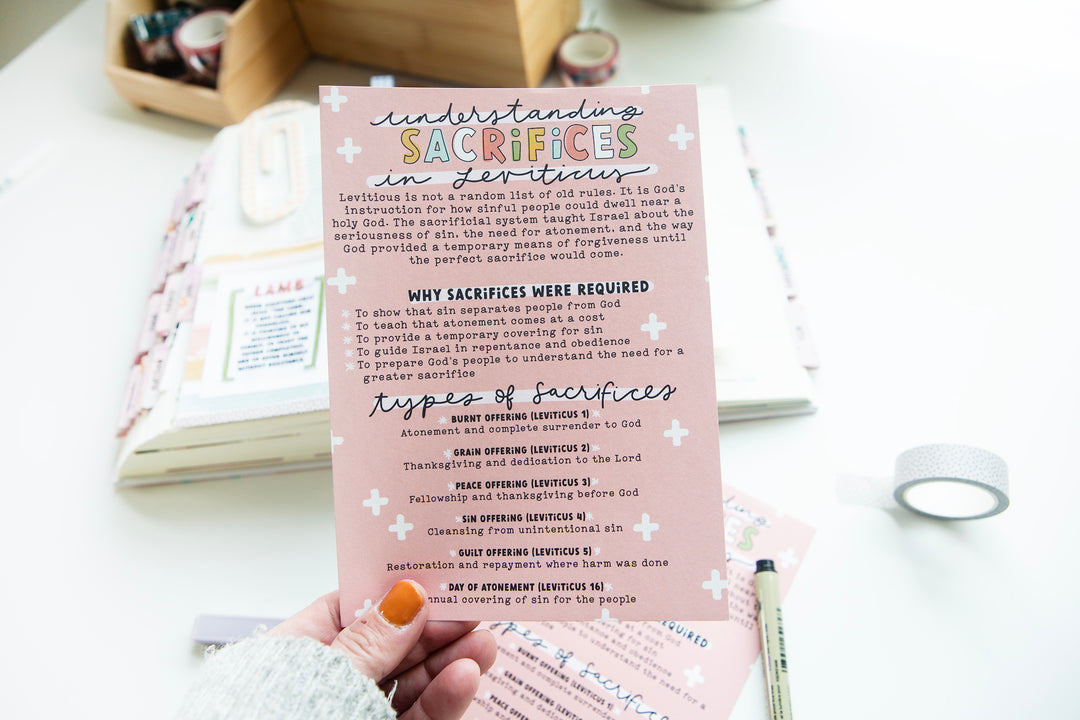 understanding
SACRiFiCES
in Leviticus
Leviticus is not a random list of old rules. It is God's
instruction for how sinful people could dwell near a
holy God. The sacrificial system taught Israel about the
seriousness of sin, the need for atonement, and the way
God provided a temporary means of forgiveness until
the perfect sacrifice would come.
WHY SACRiFiCES WERE REQUiRED
To show that sin separates people from God
To teach that atonement comes at a cost
To provide a temporary covering for sin
To guide Israel in repentance and obedience
To prepare God's people to understand the need for a
greater sacrifice
types of Sacrifices
BURNT OFFERiNG (LEViTiCUS 1)
Atonement and complete surrender to God
GRAiN OFFERiNG (LEViTiCUS 2)
Thanksgiving and dedication to the Lord
PEACE OFFERiNG (LEViTiCUS 3)
Fellowship and thanksgiving before God
SiN OFFERiNG (LEViTiCUS 4)
Cleansing from unintentional sin
GUiLT OFFERiNG (LEViTiCUS 5)
Restoration and repayment where harm was done
DAY OF ATONEMENT (LEViTiCUS 16)
nnual covering of sin for the people
LAMB
ES
QUiRED
and obedience
to understand the need for a
types of Sacrific
BURNT OFFERiNG (LEViTiCUS 1)
ement and complete surrender
GRAiN OFFERiNG
giving and
PEACE OFFE